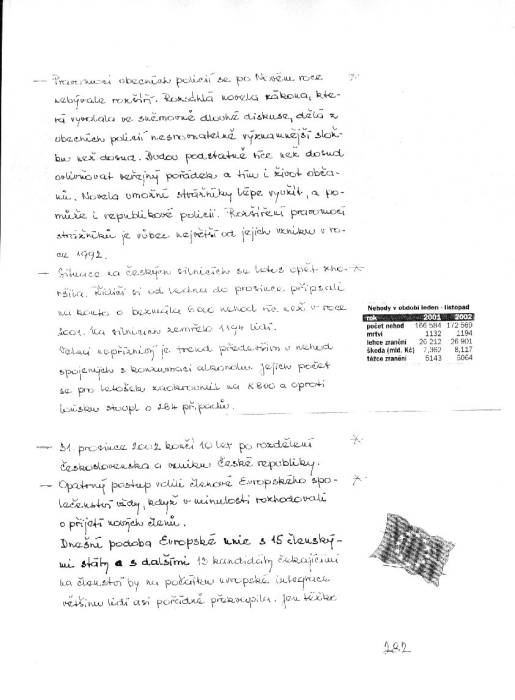 — Pravomoci obecních policií se po Novém roce
nebývale rozšíří. Rozsáhlá novela zákona, kte-
rá vyvolala ve sněmovně dlouhé diskuse, dělá z
obecních policií nesrovnatelně významnější slož-
ku než dosud. Budou podstatně více než dosud
ovlivňovat veřejný pořádek a tím i život obča-
nů. Novela umožní strážníky lépe využít, a po-
může i republikové policii. Rozšíření pravomocí
strážníků je vůbec největší od jejich vzniku v ro-
ce 1992.
— Situace na českých silnicích se letos opět zho-
ršila. Řidiči si od ledna do prosince připsali
na konto o bezmála 6000 nehod víc než v roce
2001. Na silnicích zemřelo 1194 lidí.
Velmi nepříznivý je trend především u nehod
spojených s konzumací alkoholu. Jejich počet
se pro letošek zaokrouhlil na 8800 a oproti
loňsku stoupl o 284 případů.
Nehody v období leden - listopad
rok 2001 2002
počet nehod 166 584 172 569
mrtví 1132 1194
lehce zranění 26 212 26 901
škoda (mld. Kč) 7,362 8,117
těžce zranění 5143 5064
— 31. prosince 2002 končí 10 let po rozdělení
Československa a vzniku České republiky.
— Opatrný postup volili členové Evropského spo-
lečenství vždy, když v minulosti rozhodovali
o přijetí nových členů.
Dnešní podoba Evropské unie s 15 člensky-
mi státy a s dalšími 13 kandidáty čekajícími
na členství by na počátku evropské integrace
většinu lidí asi pořádně překvapila. Jen těžko
282